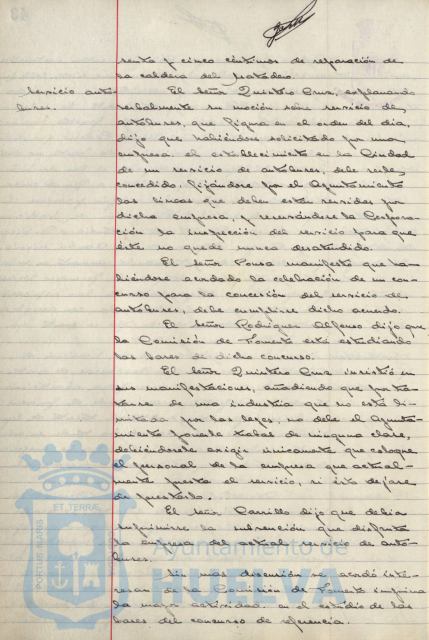 senta y cinco céntimos de reparación de
la caldera del Matadero.
Servicio auto-
buses.
El Señor Quintero Cruz, explanando
verbalmente su moción sobre servicio de
autobuses, que figura en el orden del día,
dijo que habiéndose solicitado por una
empresa el establecimiento en la Ciudad
de un servicio de autobuses, debe serle
concedido, fijándose por el Ayuntamiento
las líneas que deben estar servidas por
dicha empresa, y reservándose la Corpora-
ción la inspección del servicio para que
éste no quede nunca desatendido.
El Señor Ponsa manifestó que ha-
biéndose acordado la celebración de un con-
curso para la concesión del servicio de
autobuses, debe cumplirse dicho acuerdo.
El Señor Rodríguez Alfonso dijo que
la Comisión de Fomento está estudiando
las bases de dicho concurso.
El Señor Quintero Cruz insistió en
sus manifestaciones, añadiendo que por tra-
tarse de una industria que no está li-
mitada por las leyes, no debe el Ayunta-
miento ponerle trabas de ninguna clase,
debiéndosele exigir únicamente que coloque
el personal de la empresa que actual-
mente presta el servicio, si ésta dejare
de prestarlo.
El Señor Carrillo dijo que debía
suprimirse la subvención que disfruta
la empresa del actual servicio de auto-
buses.
Sin más discusión se acordó inte-
resar de la Comisión de Fomento imprima
la mayor actividad en el estudio de las
bases del concurso de referencia.
PORTUS MARIS
ET TERRAE
Ayuntamiento de
HUELVA